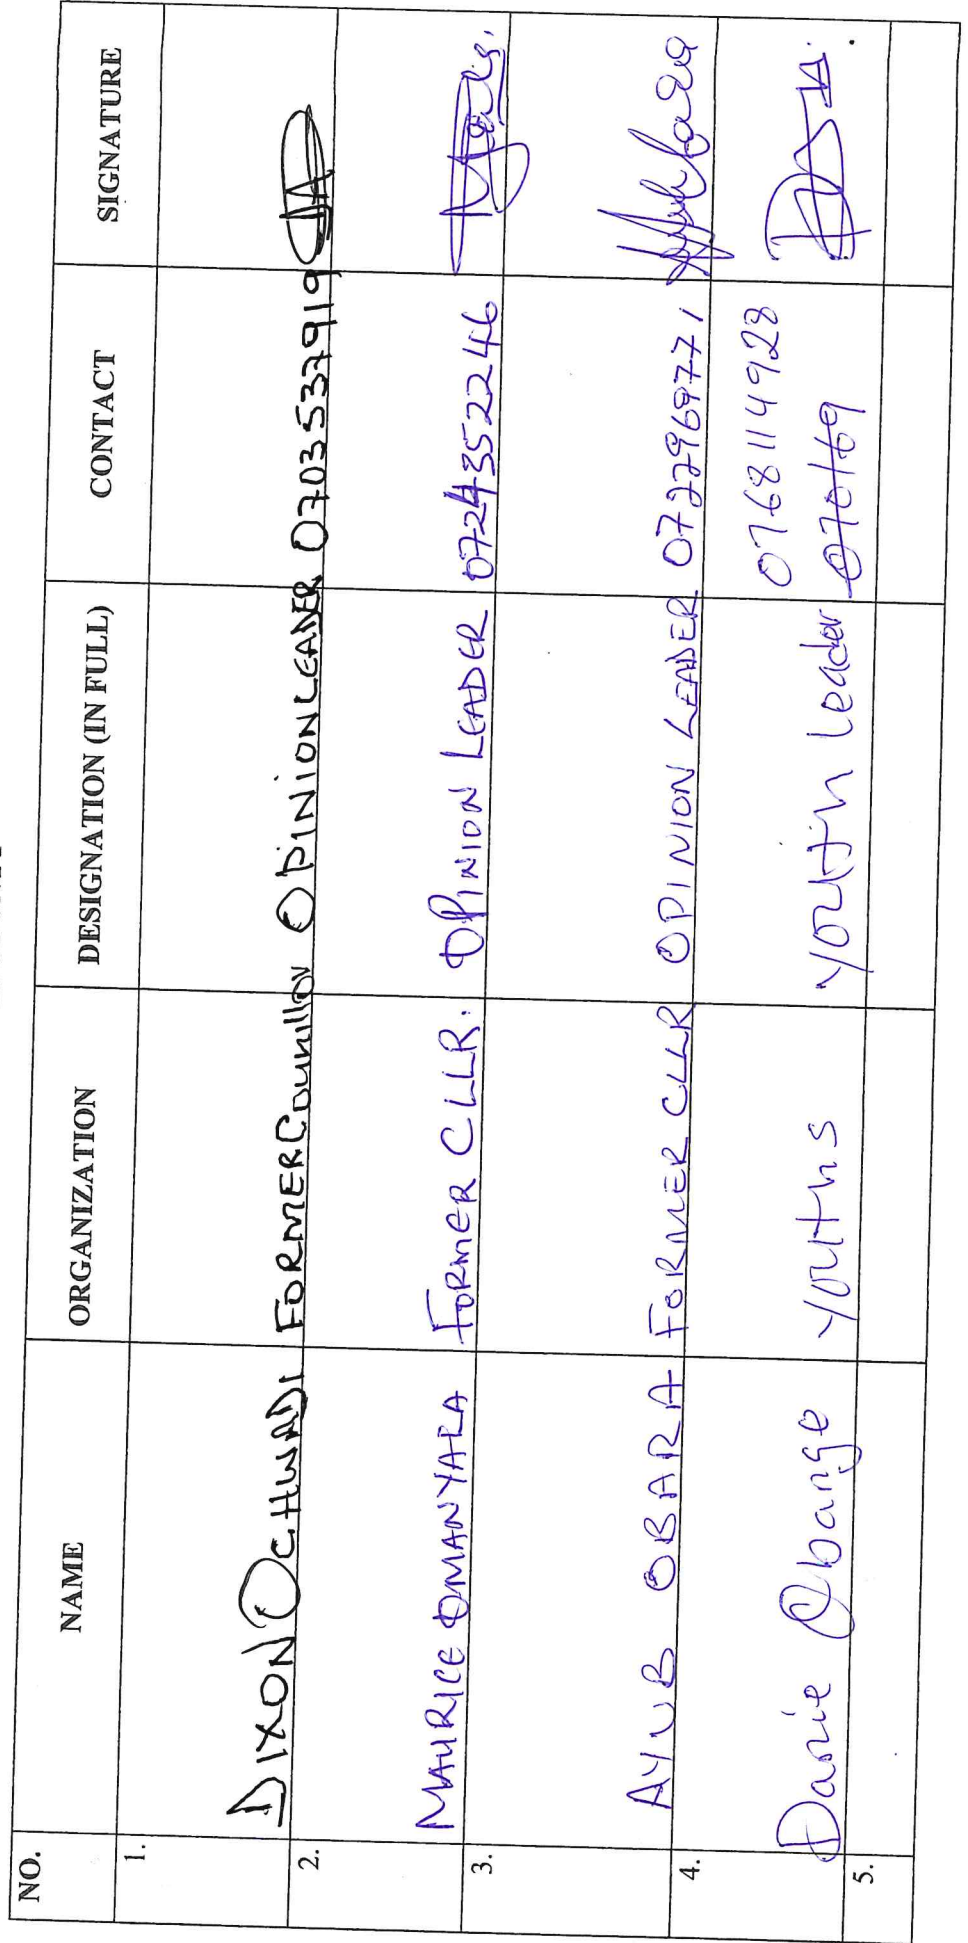 NO. NAME ORGANIZATION DESIGNATION (IN FULL) CONTACT SIGNATURE
1. DIXON OCHWADI FORMER Councillor OPINION LEADER 0703537919
2. MAURICE OMANYARA FORMER CLLR. OPINION LEADER 0724352246
3. AYUB OBARA FORMER CLLR OPINION LEADER 0722968771
4. Danie Obange youths youth leader 0768114928
5.